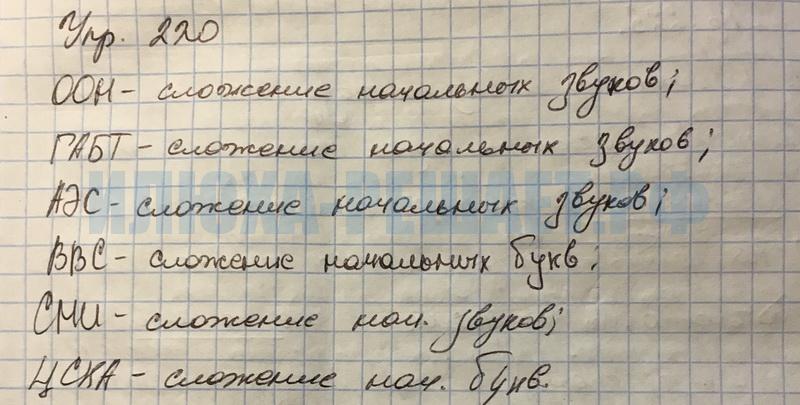 Упр. 220
ООН - сложение начальных звуков;
ГАБТ - сложение начальных звуков;
АЭС - сложение начальных звуков;
ИЛЮХА-РЕШАЕТ.РФ
ВВС - сложение начальных букв;
СМИ - сложение нач. звуков;
ЦСКА - сложение нач. букв.